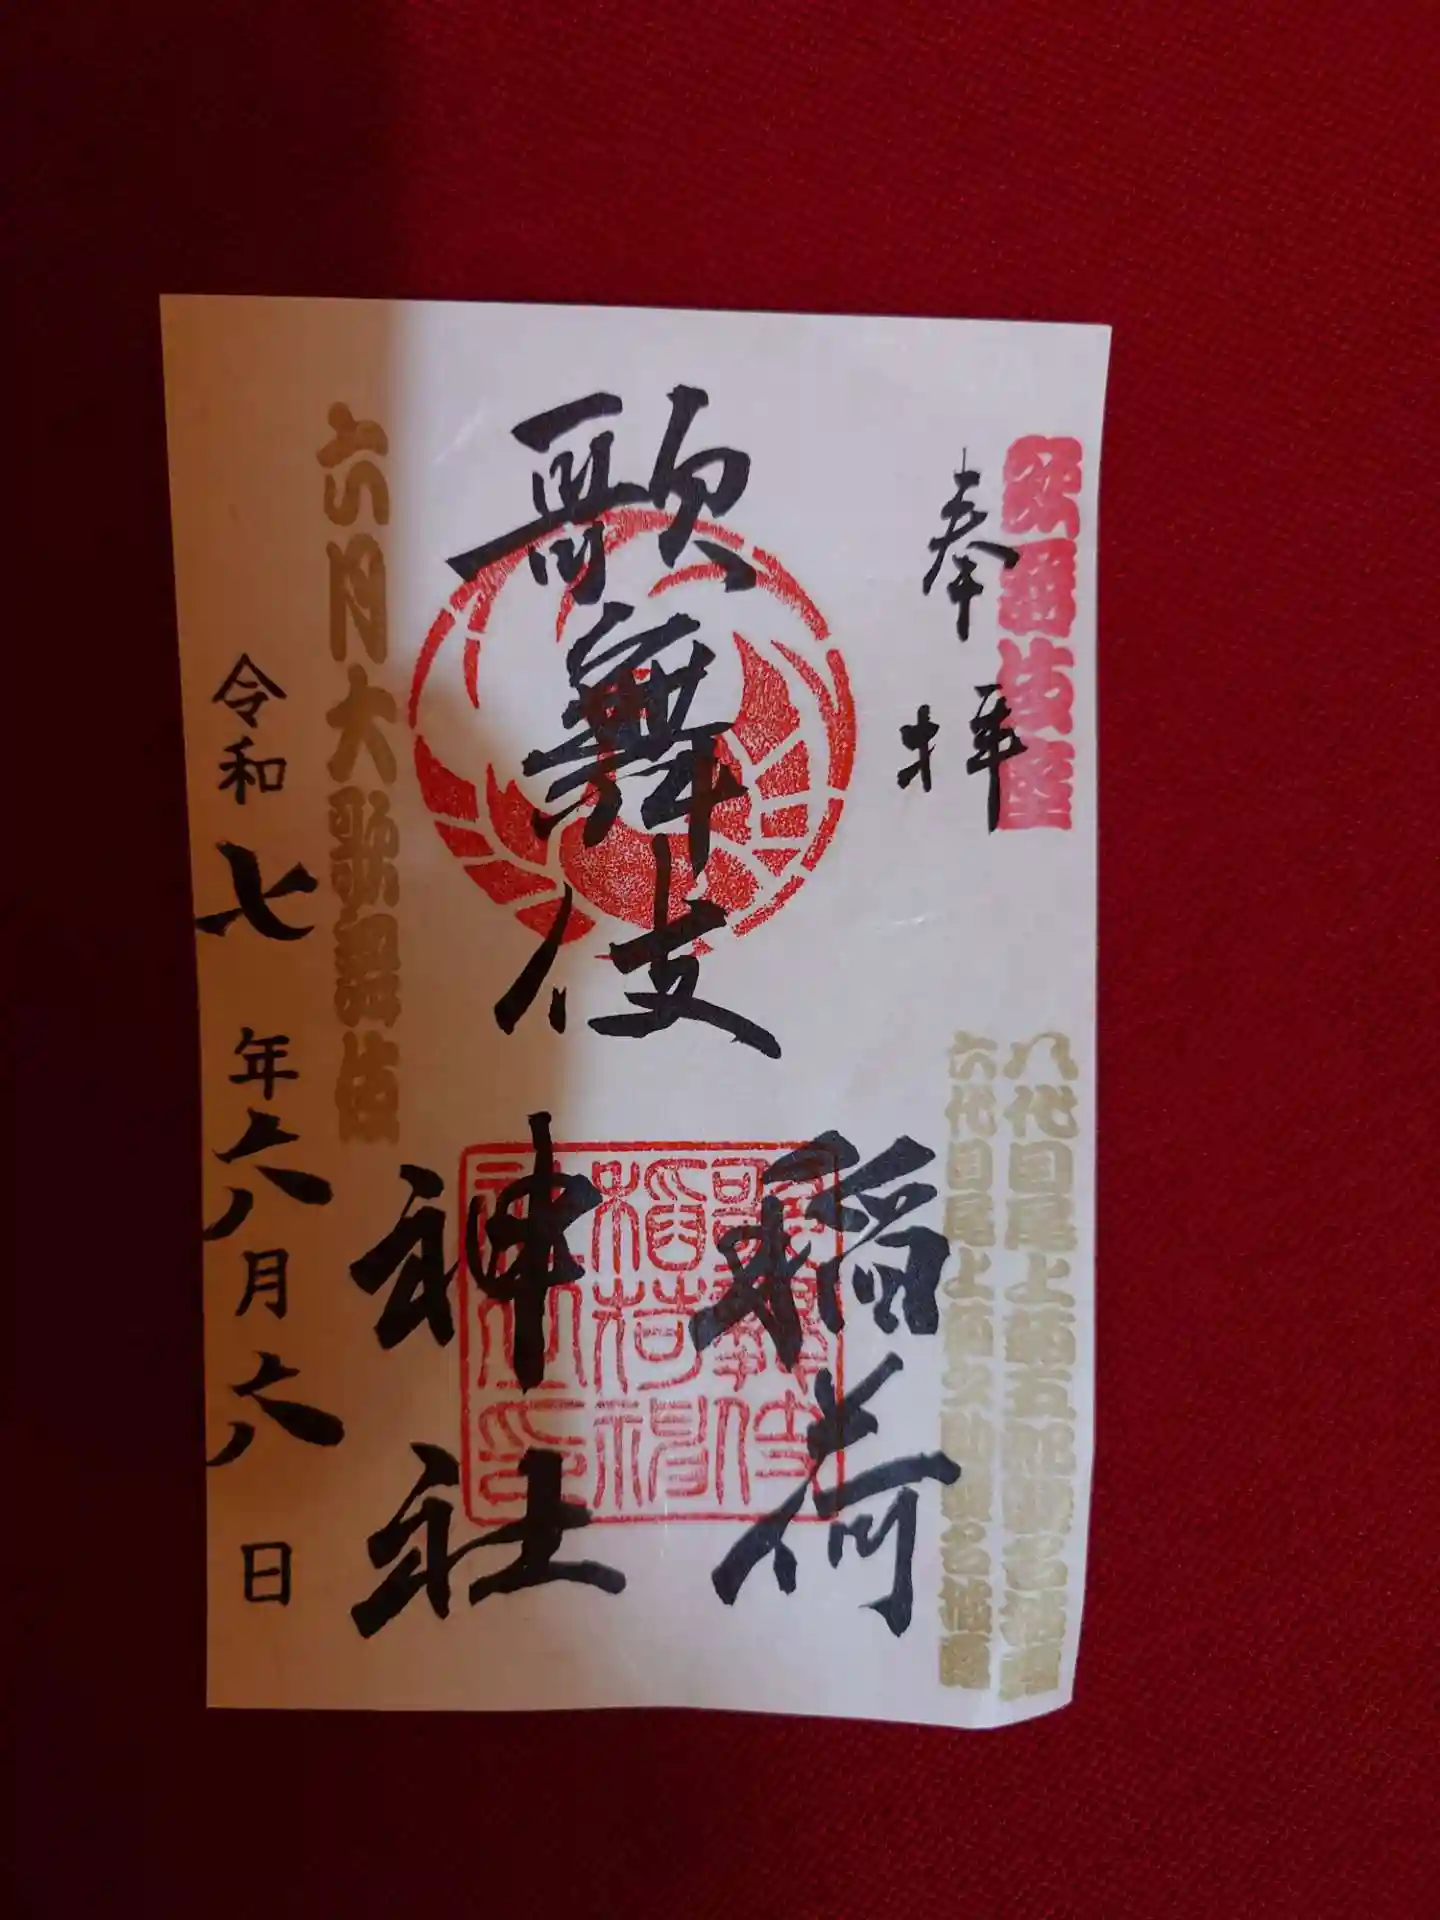 歌舞伎座
奉拝
八代目尾上菊五郎襲名披露
六代目尾上菊之助襲名披露
歌舞伎
稲荷
神社
歌舞伎
稲荷神
社之印
六月大歌舞伎
令和七年六月六日